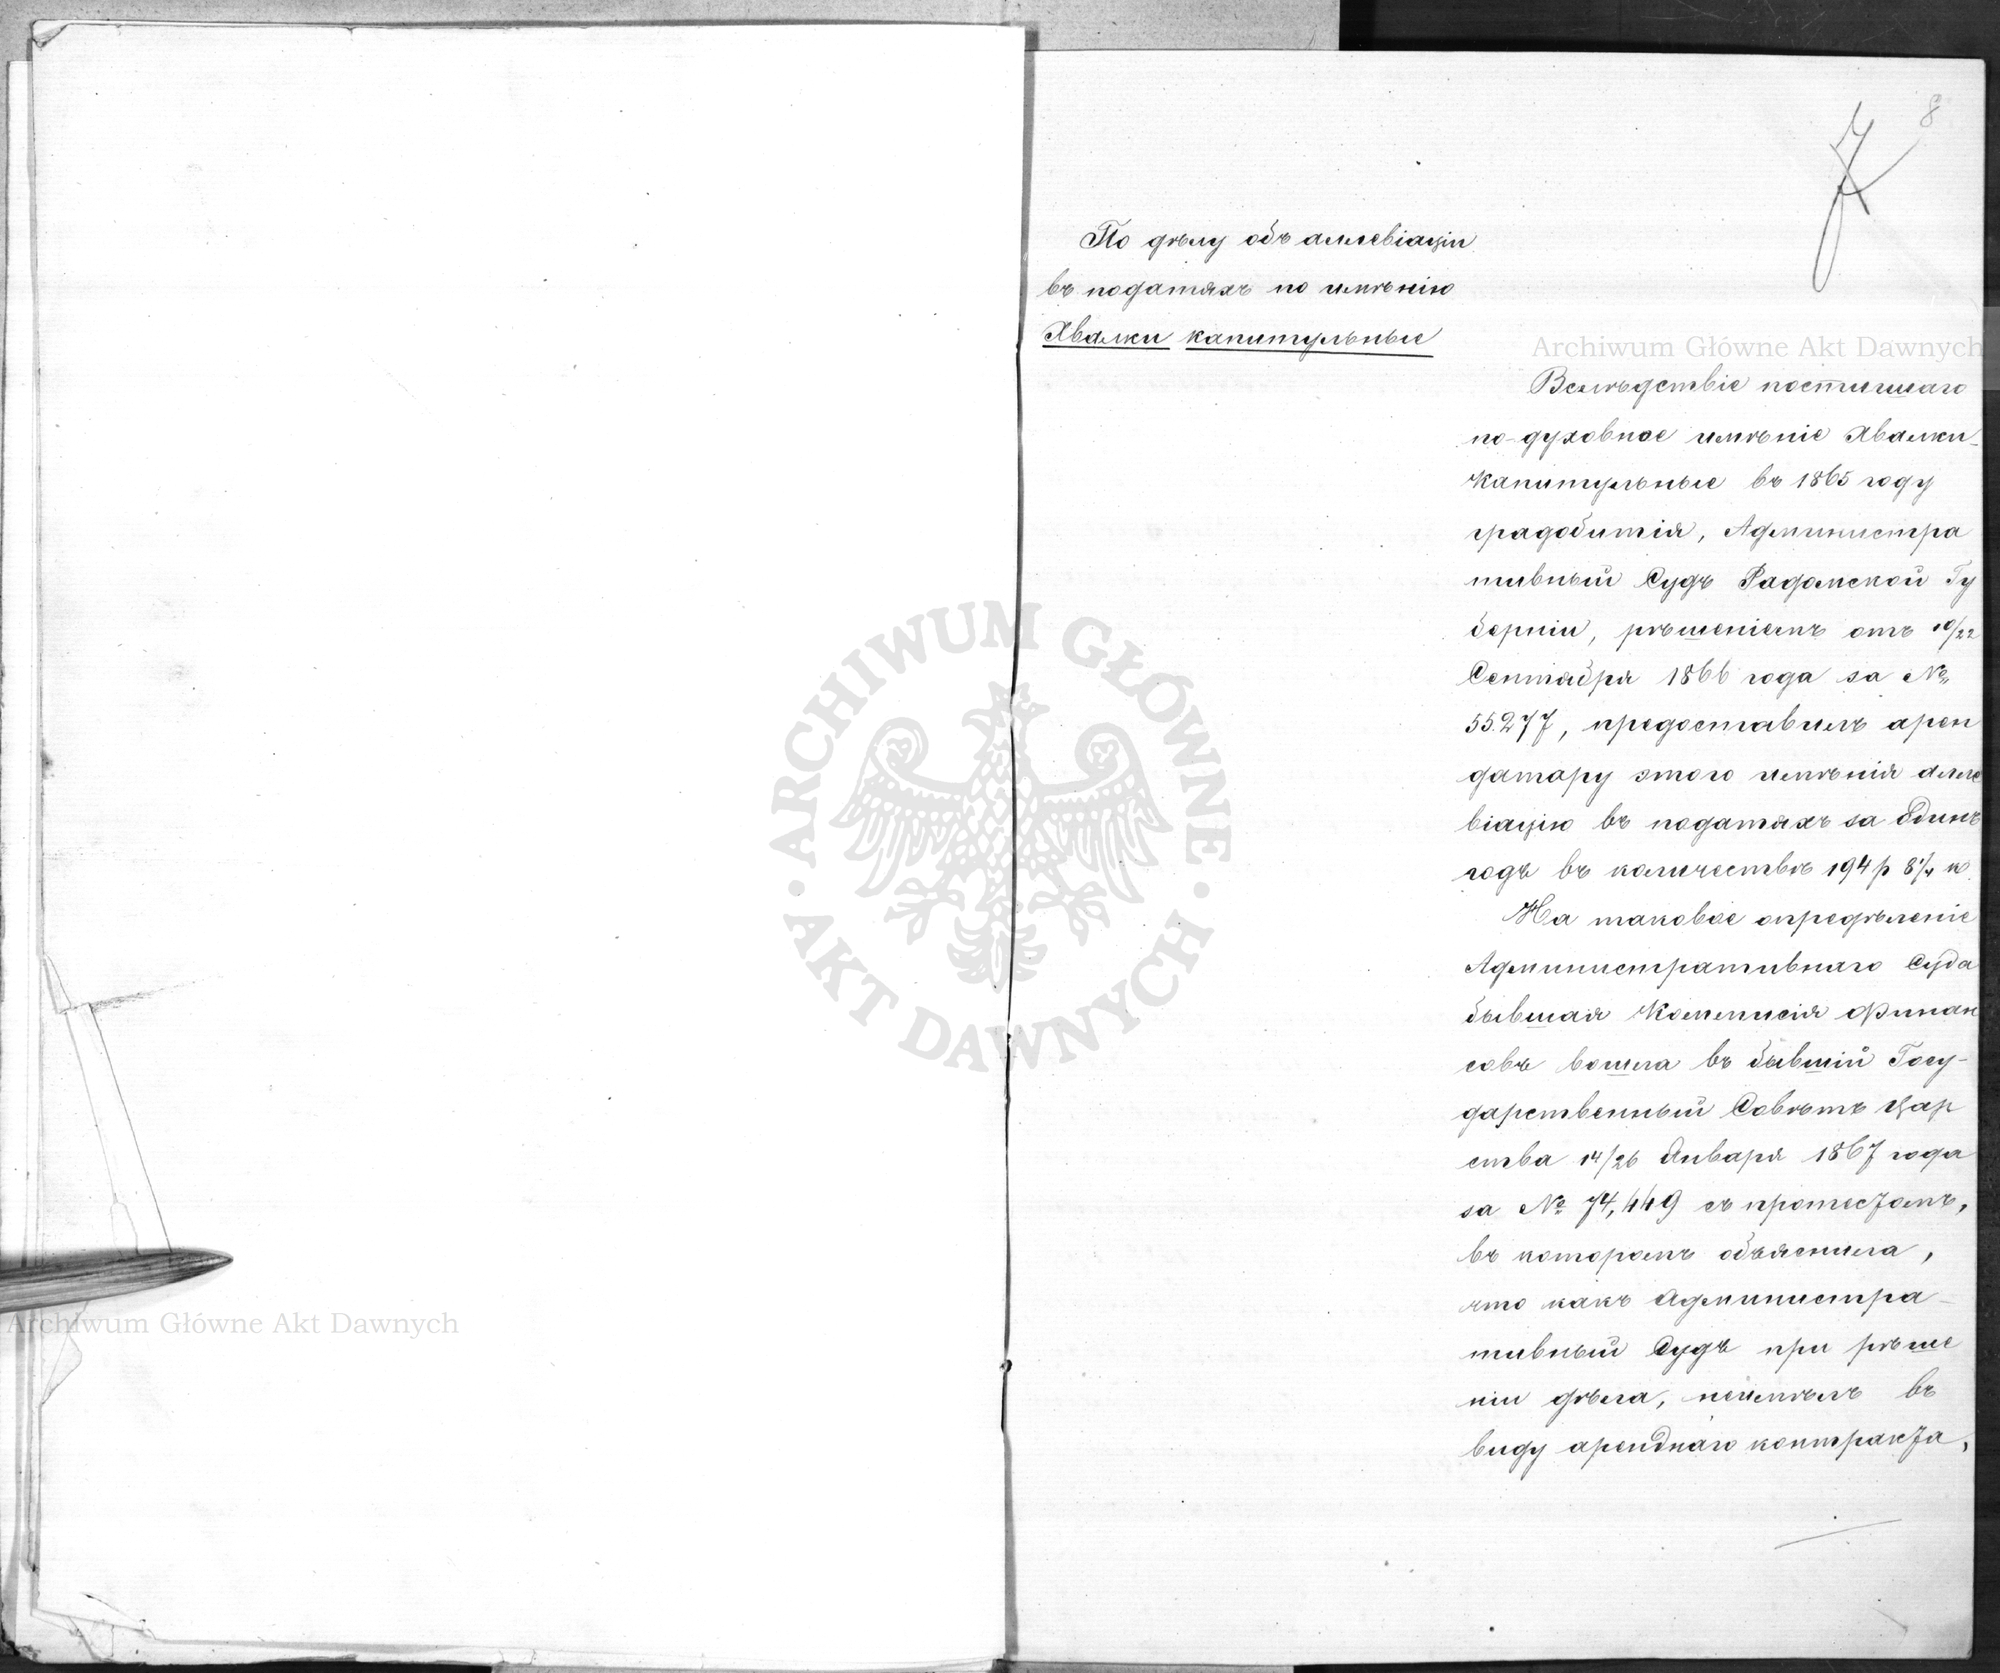 8
7
По дѣлу объ аллевіаціи
въ податяхъ по имѣнію
Хвалки капитульные
Archiwum Główne Akt Dawnych
Вслѣдствіе постигшаго
по-духовное имѣніе Хвалки-
Капитульные въ 1865 году
градобитія, Администра
тивный Судъ Радомской Гу
берніи, рѣшеніемъ отъ 10/22
Сентября 1866 года за №
55277, предоставилъ арен
датору этого имѣнія алле
віацію въ податяхъ за одинъ
годъ въ количествѣ 194 р 8¼ к.
На таковое опредѣленіе
Административнаго Суда
бывшая Коммисія Финан
совъ вошла въ бывшій Госу-
дарственный Совѣтъ Цар
ства 14/26 Января 1867 года
за № 74,449 съ протестомъ,
въ которомъ объяснила,
что какъ Администра-
тивный Судъ при рѣше
ніи дѣла, неимѣлъ въ
виду арендного контракта,
ARCHIWUM GŁÓWNE · AKT DAWNYCH ·
Archiwum Główne Akt Dawnych